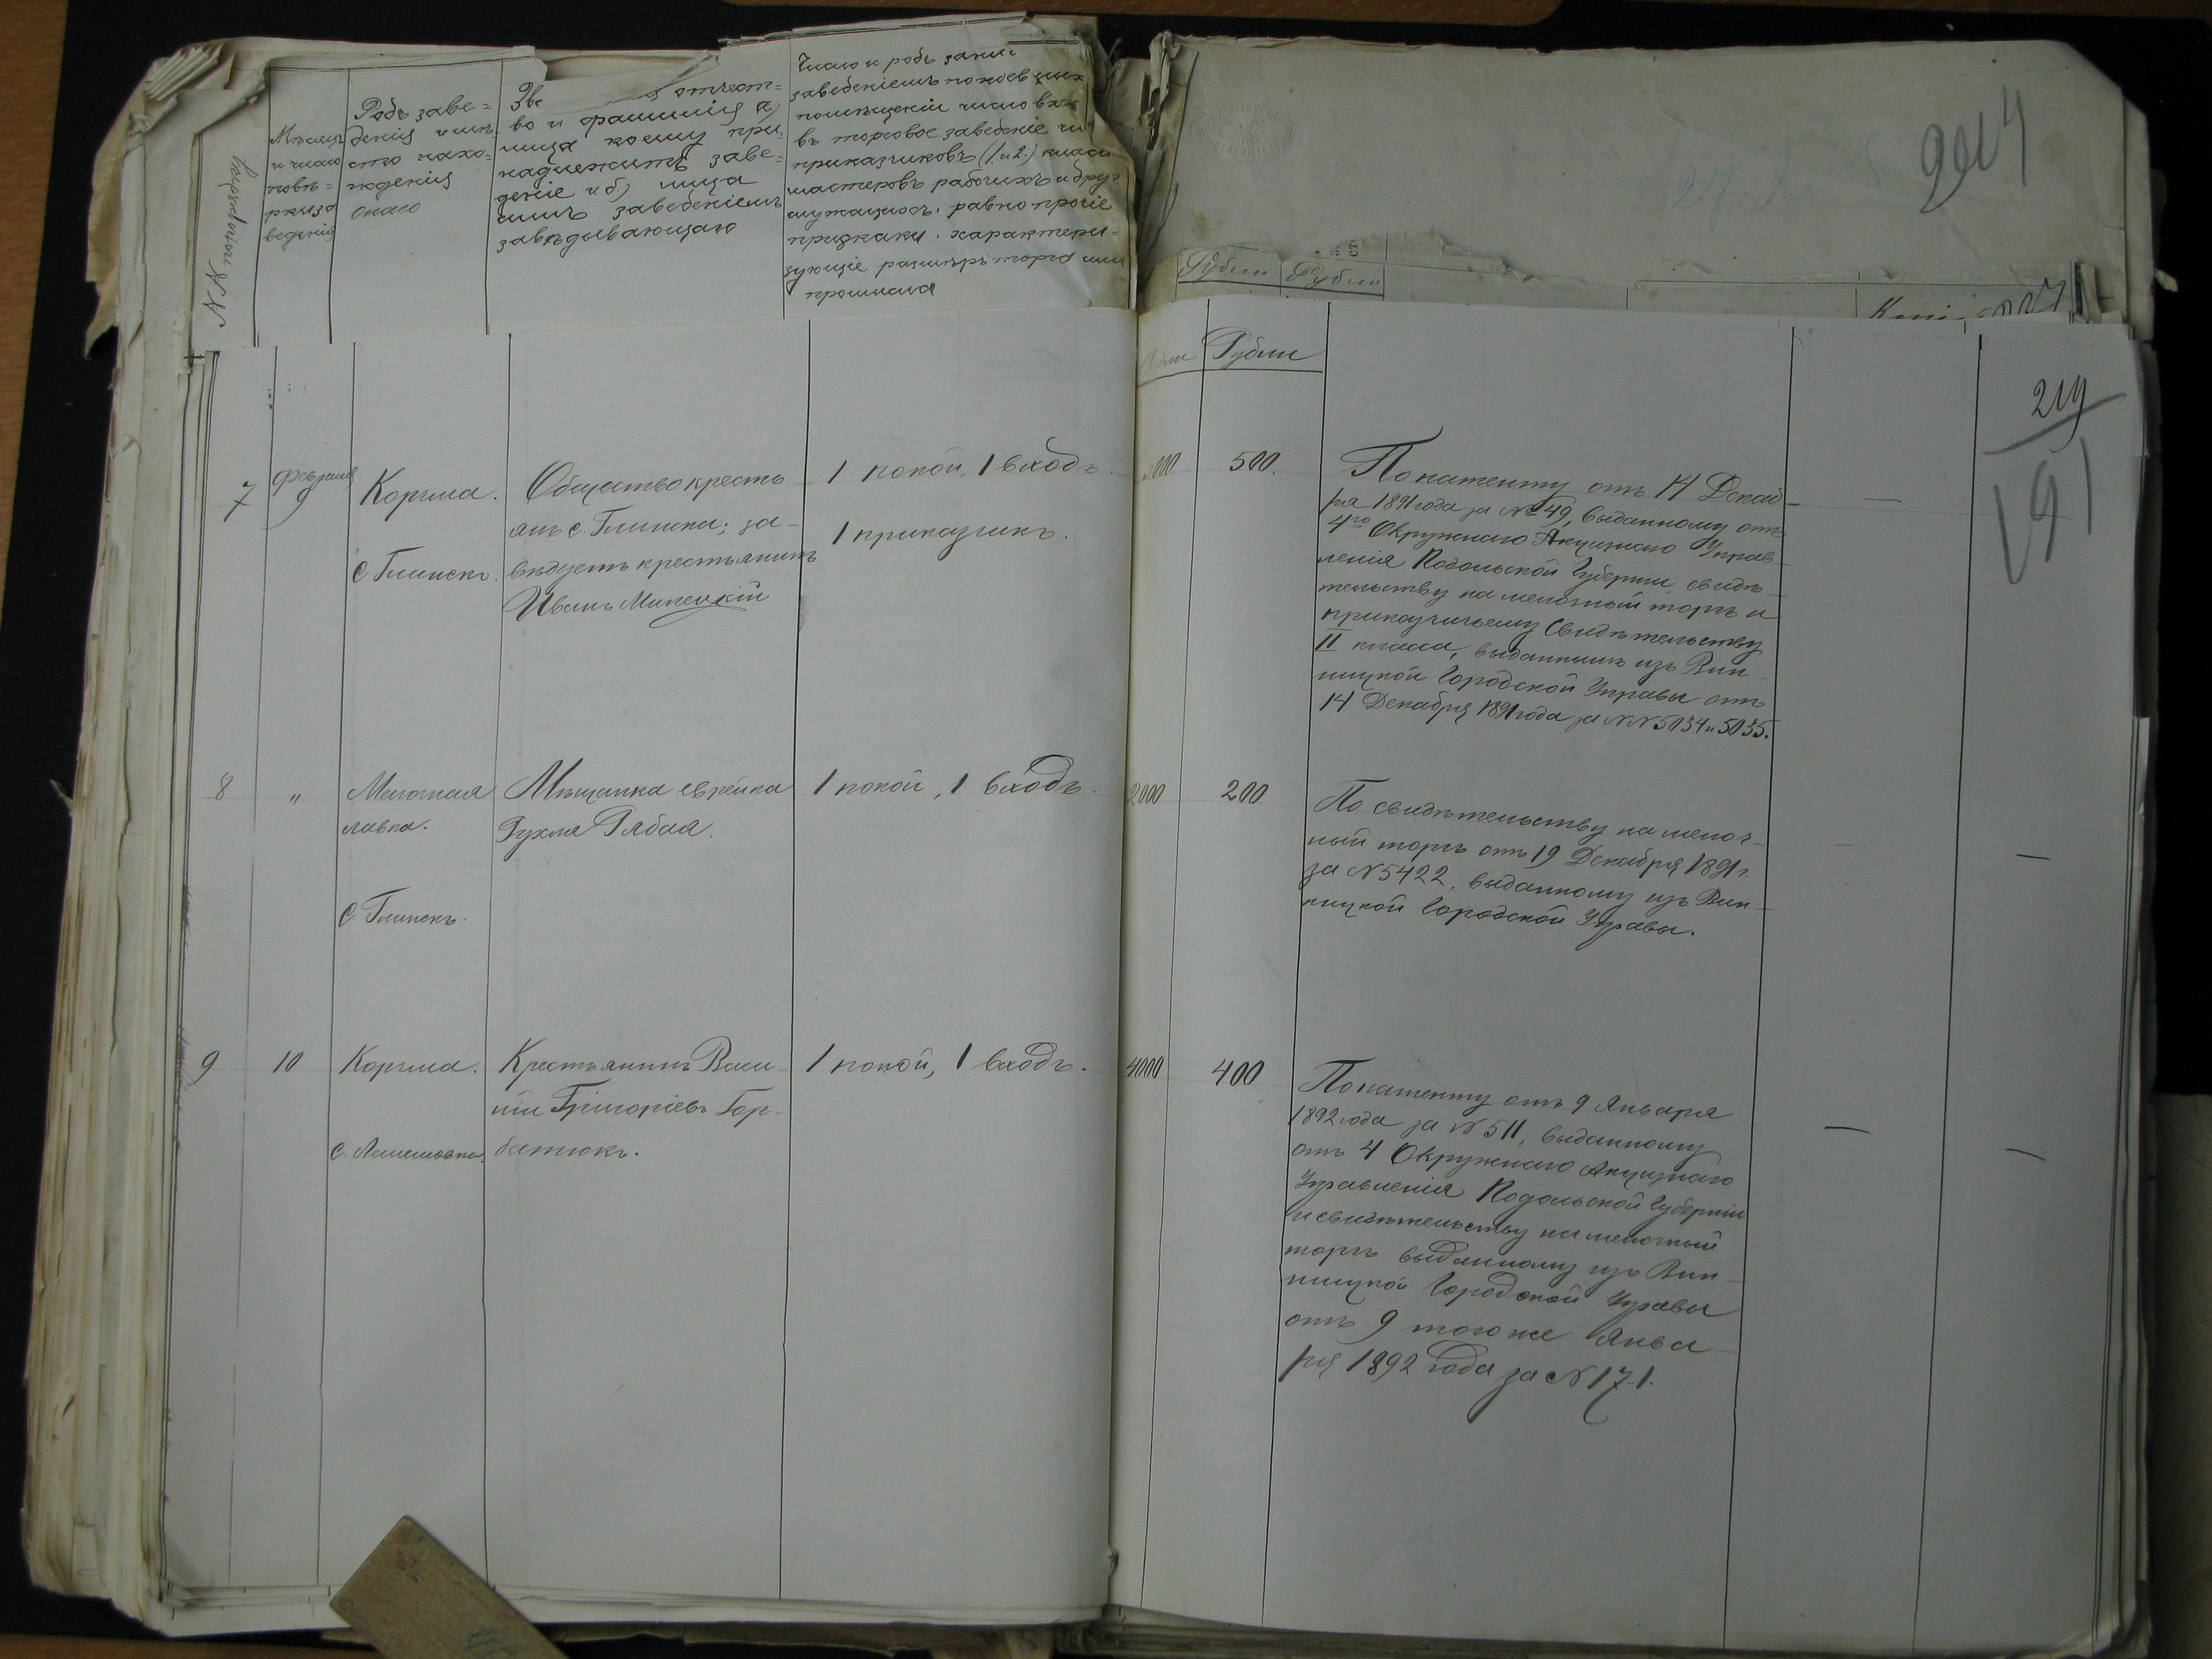 NN по порядку
Мѣсяцъ
и число
повѣ=
рки за
веденія
Родъ заве=
денія и мѣ-
сто нахо=
жденія
онаго
Зва отчест=
во и фамилія а)
лица коему при-
надлежитъ заве=
деніе и б) лица
симъ заведеніемъ
завѣдывающаго
Число и родъ зани-
заведеніемъ покоев
помѣщеніи число вхо
въ торговое заведеніе чи
приказчиковъ (1 и 2.) класс
мастеровъ рабочихъ и друг
служащихъ, равно прочіе
признаки, характери=
зующіе размѣръ торга или
промысла
Рубли Рубли
Рубли Рубли
219
191
7
Февраля
9
Корчма.
С. Глинскъ.
Общество кресть-
янъ с. Глинска; за-
вѣдуетъ крестьянинъ
Иванъ
1 покой, 1 входъ.
1 приказчикъ.
5000
500.
По патенту отъ 14 Декаб-
ря 1891 года за № 49, выданному отъ
4го Окружнаго Акцизнаго Управ-
ленія Подольской Губерніи, свидѣ-
тельству на мелочный торгъ и
приказчичьему Свидѣтельству
II класса, выданнымъ изъ Вин-
ницкой Городской Управы отъ
14 Декабря 1891 года за NN 5034 и 5035.
—
8
"
Мелочная
лавка.
С. Глинскъ.
Мѣщанка еврейка
Рухля Рябая.
1 покой, 1 входъ.
2000
200
По свидѣтельству на мелоч-
ный торгъ отъ 19 Декабря 1891 г.
за N 5422, выданному изъ Вин-
ницкой Городской Управы.
—
—
9
10
Корчма.
С. Лемешовка.
Крестьянинъ Васи-
лій Григоріевъ Гор-
батюкъ.
1 покой, 1 входъ.
4000
400
По патенту отъ 9 Января
1892 года за N 511, выданному
отъ 4 Окружнаго Акцизнаго
Управленія Подольской Губерніи
и свидѣтельству на мелочный
торгъ выданному изъ Вин-
ницкой Городской Управы
отъ 9 того же Янва-
ря 1892 года за N 171.
—
—